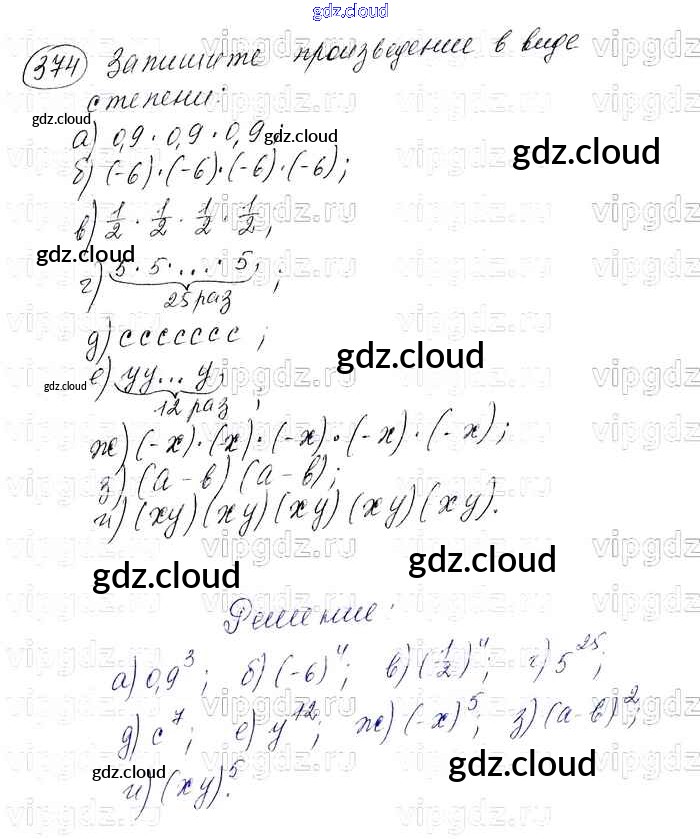 gdz.cloud
374 Запишите произведение в виде
степени:
gdz.cloud
а) 0,9 · 0,9 · 0,9;
gdz.cloud
б) (-6)·(-6)·(-6)·(-6);
gdz.cloud
в) 1/2 · 1/2 · 1/2 · 1/2;
gdz.cloud
г) 5 · 5 · ... · 5;
25 раз
д) ссссссс;
gdz.cloud
е) уу... у;
gdz.cloud
12 раз
ж) (-х)·(-х)·(-х)·(-х)·(-х);
з) (а-в)(а-в);
и) (ху)(ху)(ху)(ху)(ху).
gdz.cloud
gdz.cloud
Решение:
а) 0,9³; б) (-6)⁴; в) (1/2)⁴; г) 5²⁵;
д) с⁷; е) у¹²; ж) (-х)⁵; з) (а-в)²;
gdz.cloud
gdz.cloud
и) (ху)⁵.
vipgdz.ru